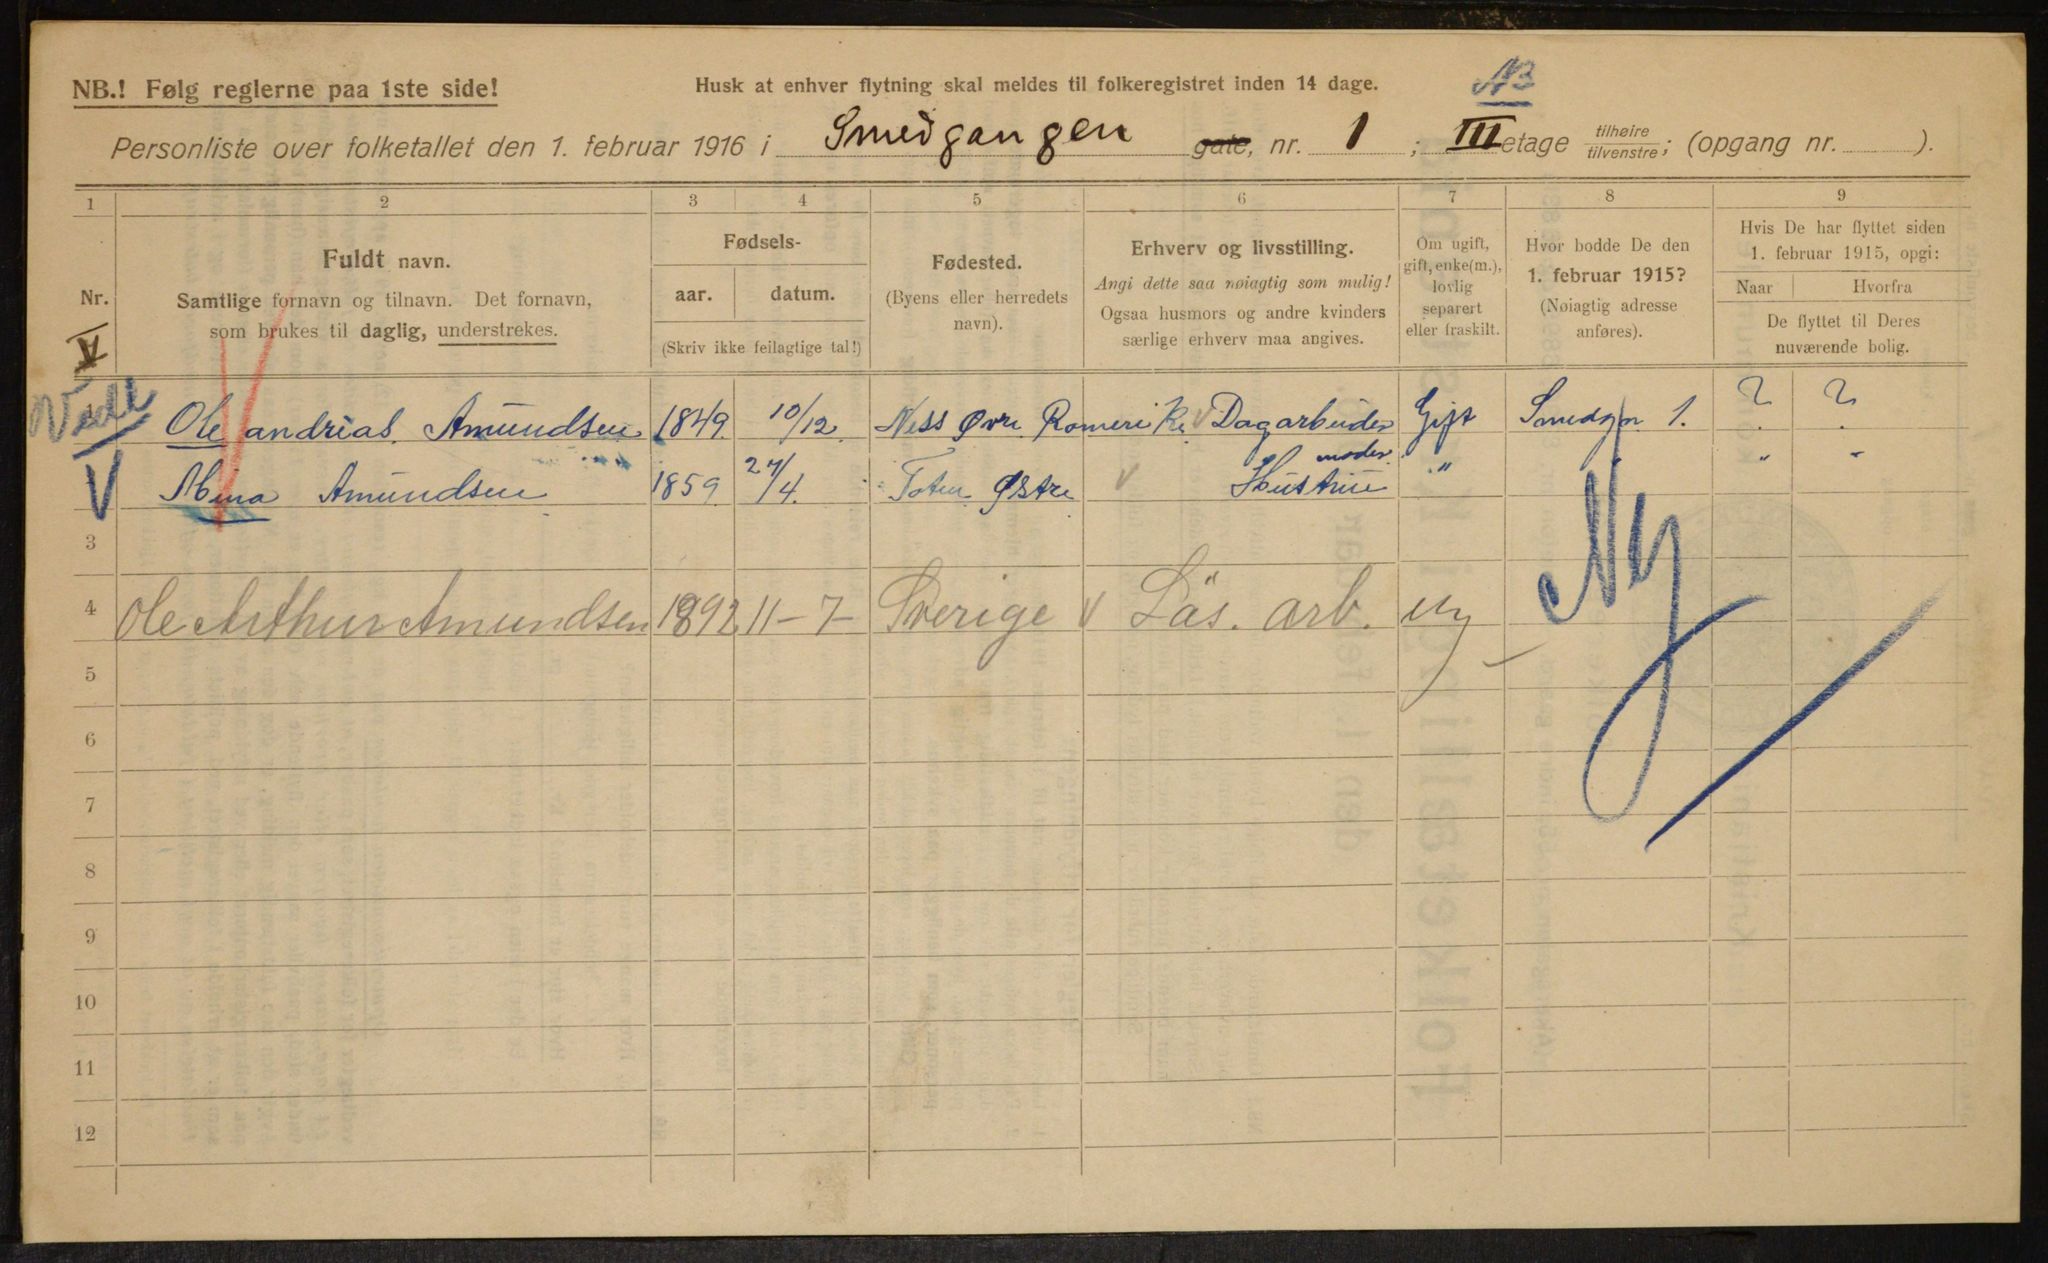 NB.! Følg reglerne paa 1ste side!
Husk at enhver flytning skal meldes til folkeregistret inden 14 dage.
NB
Personliste over folketallet den 1. februar 1916 i Smedgangen gate, nr. 1 ; III etage tilhøire tilvenstre; (opgang nr. ).
1 2 3 4 5 6 7 8 9
Nr.
Fuldt navn.
Samtlige fornavn og tilnavn. Det fornavn,
som brukes til daglig, understrekes.
Fødsels-
aar. datum.
(Skriv ikke feilagtige tal!)
Fødested.
(Byens eller herredets
navn).
Erhverv og livsstilling.
Angi dette saa nøiagtig som mulig!
Ogsaa husmors og andre kvinders
særlige erhverv maa angives.
Om ugift,
gift, enke(m.),
lovlig
separert
eller fraskilt.
Hvor bodde De den
1. februar 1915?
(Nøiagtig adresse
anføres).
Hvis De har flyttet siden
1. februar 1915, opgi:
Naar Hvorfra
De flyttet til Deres
nuværende bolig.
V
Ole andrias Amundsen 1849 10/12 Ness Øvr. Romerike V Dagarbeider Gift Smedgn. 1. ? ?
V Mina Amundsen 1859 27/4 Toten Østre V Hustrue moder " " "
3
4 Ole Arthur Amundsen 1892 11-7- Sverige V Läs. arb. ug -
Ny
5
6
7
8
9
10
11
12